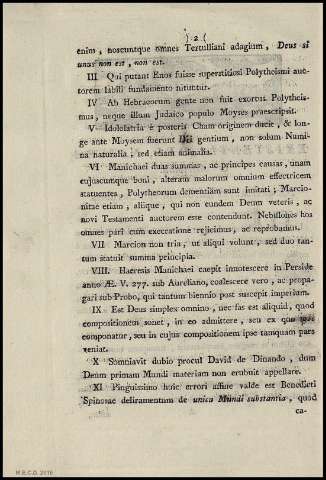 ) 2 (
enim, noscuntque omnes Tertulliani adagium, Deus si
unus non est, non est.
III Qui putant Enos fuisse superstitiosi Polytheismi auc-
torem labili fundamento nituntur.
IV Ab Hebraeorum gente non fuit exortus Polytheis-
mus, neque illum Judaico populo Moyses praescripsit.
V Idololatria è posteris Cham originem ducit, & lon-
ge ante Moysem fuerunt Dii gentium, non solum Numi-
na naturalia; sed etiam animalia.
VI Manichaei duas summas, ac principes causas, unam
cujuscunque boni, alteram malorum omnium effectricem
statuentes, Polytheorum dementiam sunt imitati; Marcio-
nitae etiam, aliique, qui non eundem Deum veteris, ac
novi Testamenti auctorem esse contendunt. Nebulones hos
omnes pari cum execratione rejicimus, ac reprobamus.
VII Marcion non tria, ut aliqui volunt, sed duo tan-
tum statuit summa principia.
VIII. Haeresis Manichaei caepit innotescere in Perside
anno Æ. V. 277. sub Aureliano, coalescere vero, ac propa-
gari sub Probo, qui tantum biennio post suscepit imperium.
IX Est Deus simplex omnino, nec fas est aliquid, quod
compositionem sonet, in eo admittere, seu ex quo ipse
componatur, seu in cujus compositionem ipse tamquam pars
veniat.
X Somniavit dubio procul David de Dinando, dum
Deum primam Mundi materiam non erubuit appellare.
XI Pinguissimo huic errori affine valde est Benedicti
Spinosae deliramentum de unica Mundi substantia, quod
ca-
M.E.C.D. 2016